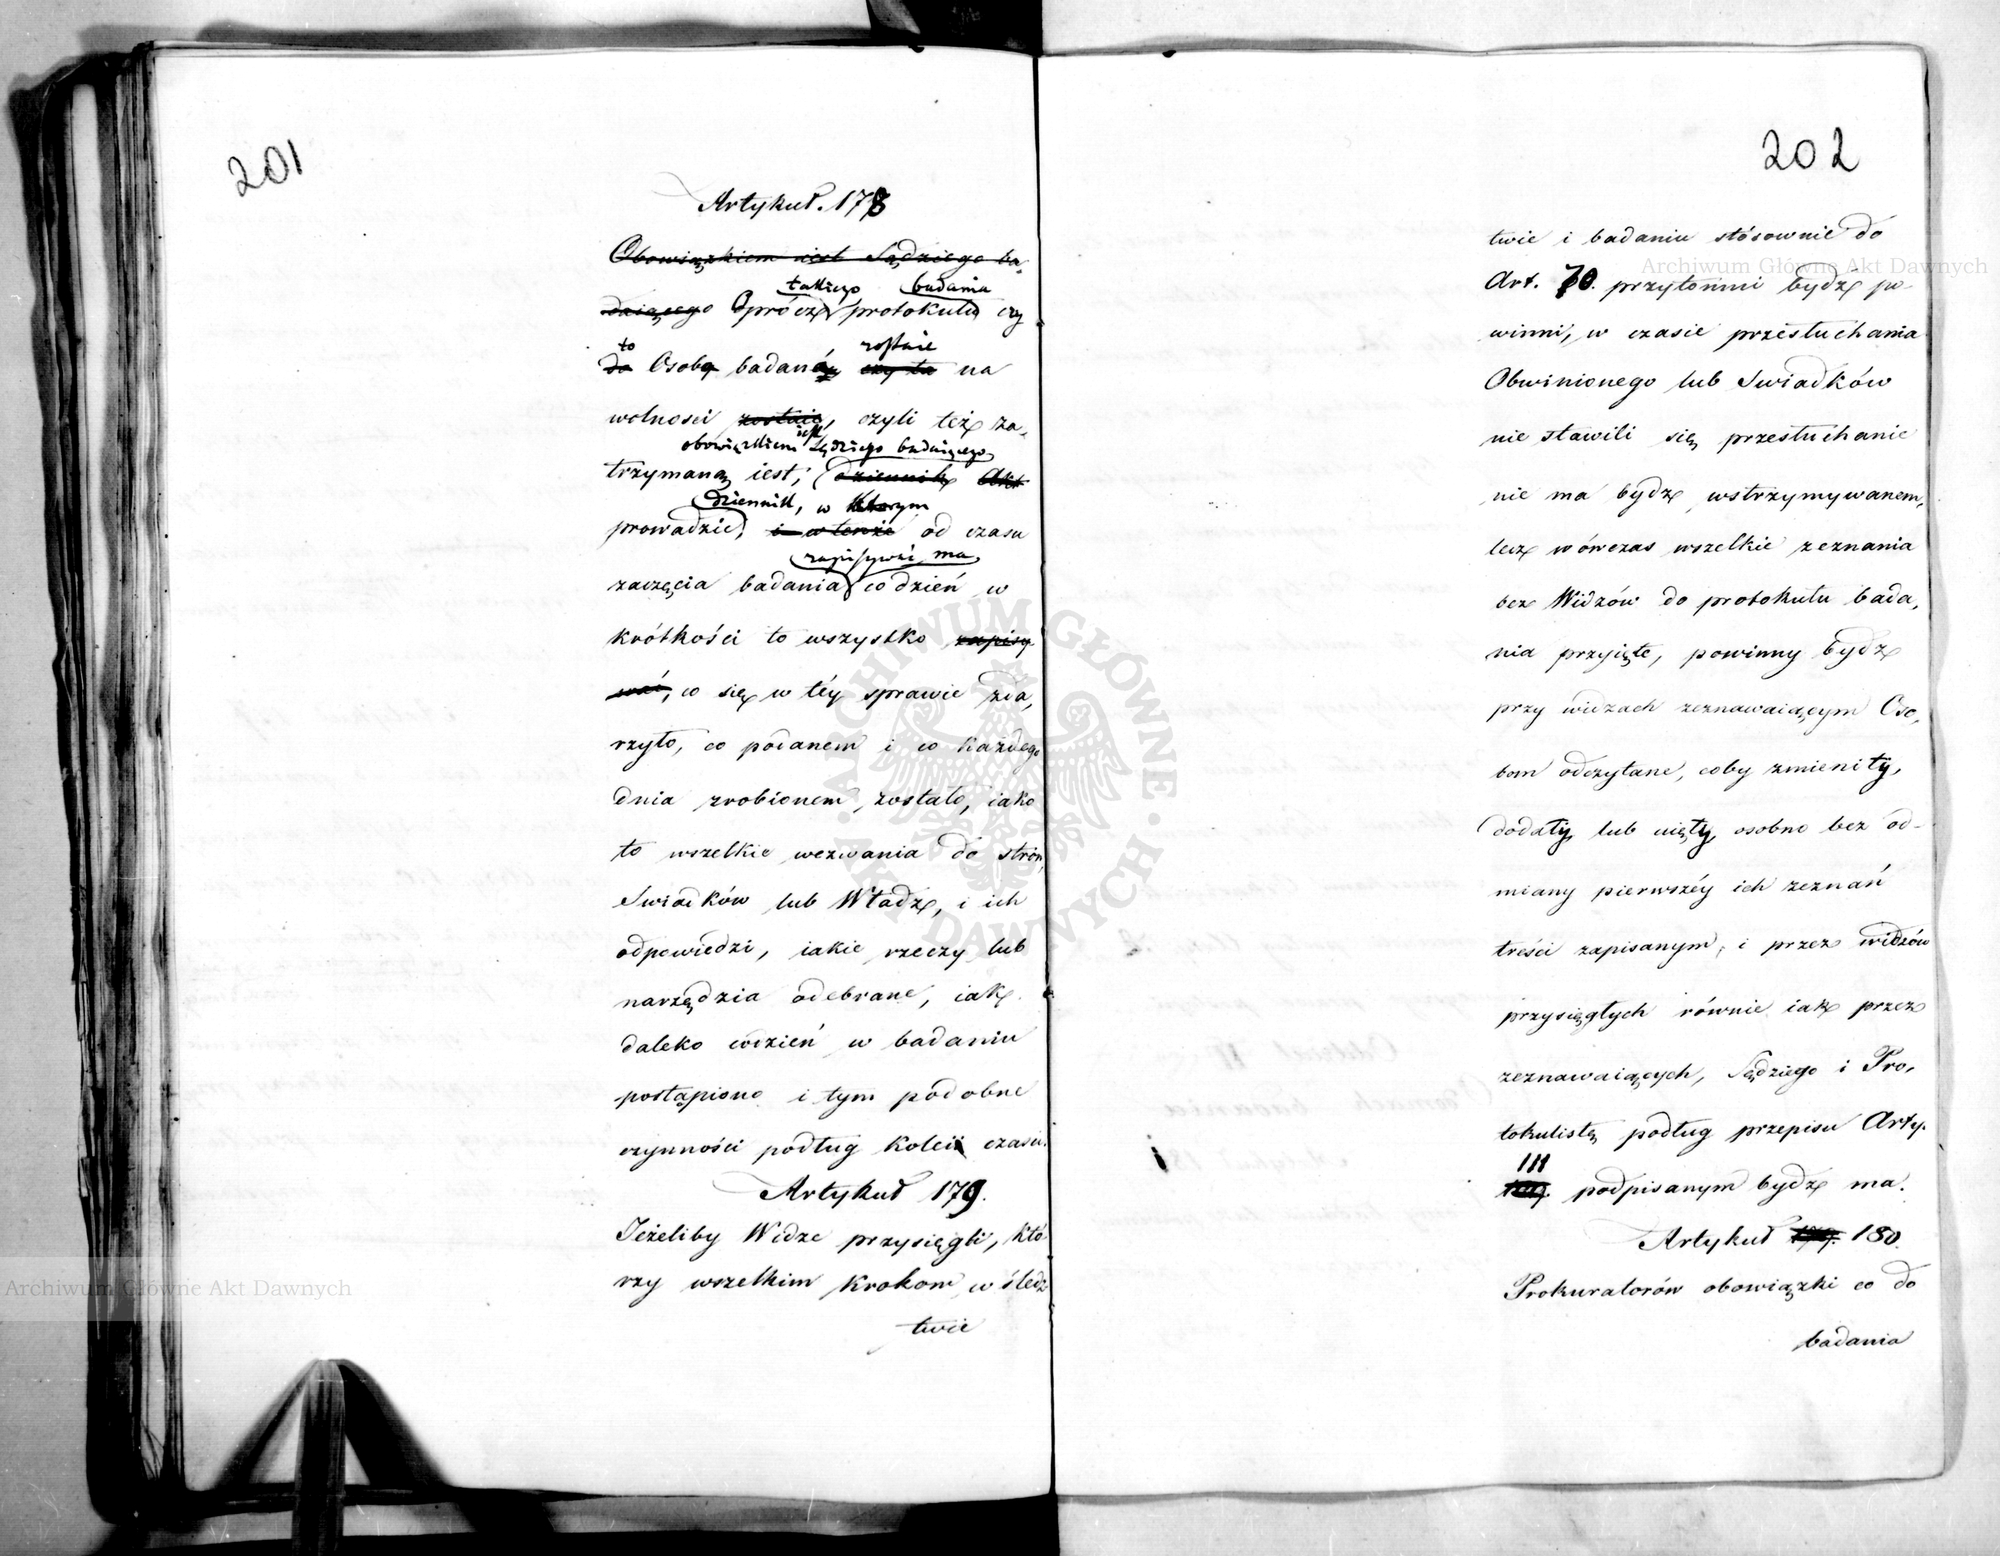 201
Artykuł. 178
Obowiązkiem iest Sądziego ba-
takiego badania
daiącego Oprócz protokułu czy
to zostaie
do Osobą badaną czy ta na
wolnosci zostaie, czyli też za-
obowiązkiem iest Sądziego badaiącego
trzymaną iest, dziennik Akt
dziennik, w którym
prowadzić, i w tenże od czasu
zapisywać ma
zaczęcia badania co dzień w
krótkości to wszystko zapisy
wać, co się w téy sprawie zda,
rzyło, co podanem i co każdego
dnia zrobionem zostało, iako
to wszelkie wezwania do stron,
Swiadków lub Władz, i ich
odpowiedzi, iakie rzeczy lub
narzędzia odebrane, iak
daleko codzień w badaniu
postąpiono i tym podobne
czynności podług kolei czasu.
Artykuł 179.
Jeżeliby Widze przysięgli, któ-
rzy wszelkim krokom w śledz
twie
202
twie i badaniu stósownie do
Art. 70. przytomni bydź po-
winni, w czasie przesłuchania
Obwinionego lub Swiadków
nie stawili się przesłuchanie
nie ma bydź wstrzymywanem,
lecz wówczas wszelkie zeznania
bez Widzów do protokułu bada,
nia przyięte, powinny bydź
przy widzach zeznawaiącym Oso,
bom odczytane, coby zmieniły,
dodały lub uięły, osobno bez od-
miany pierwszéy ich zeznań
treści zapisanym, i przez widzów
przysięgłych równie iak przez
zeznawaiących, Sądziego i Pro,
tokulistę podług przepisu Arty.
111
podpisanym bydź ma.
Artykuł 179. 180.
Prokuratorów obowiązki co do
badania
Archiwum Główne Akt Dawnych
Archiwum Główne Akt Dawnych
ARCHIWUM GŁÓWNE AKT DAWNYCH